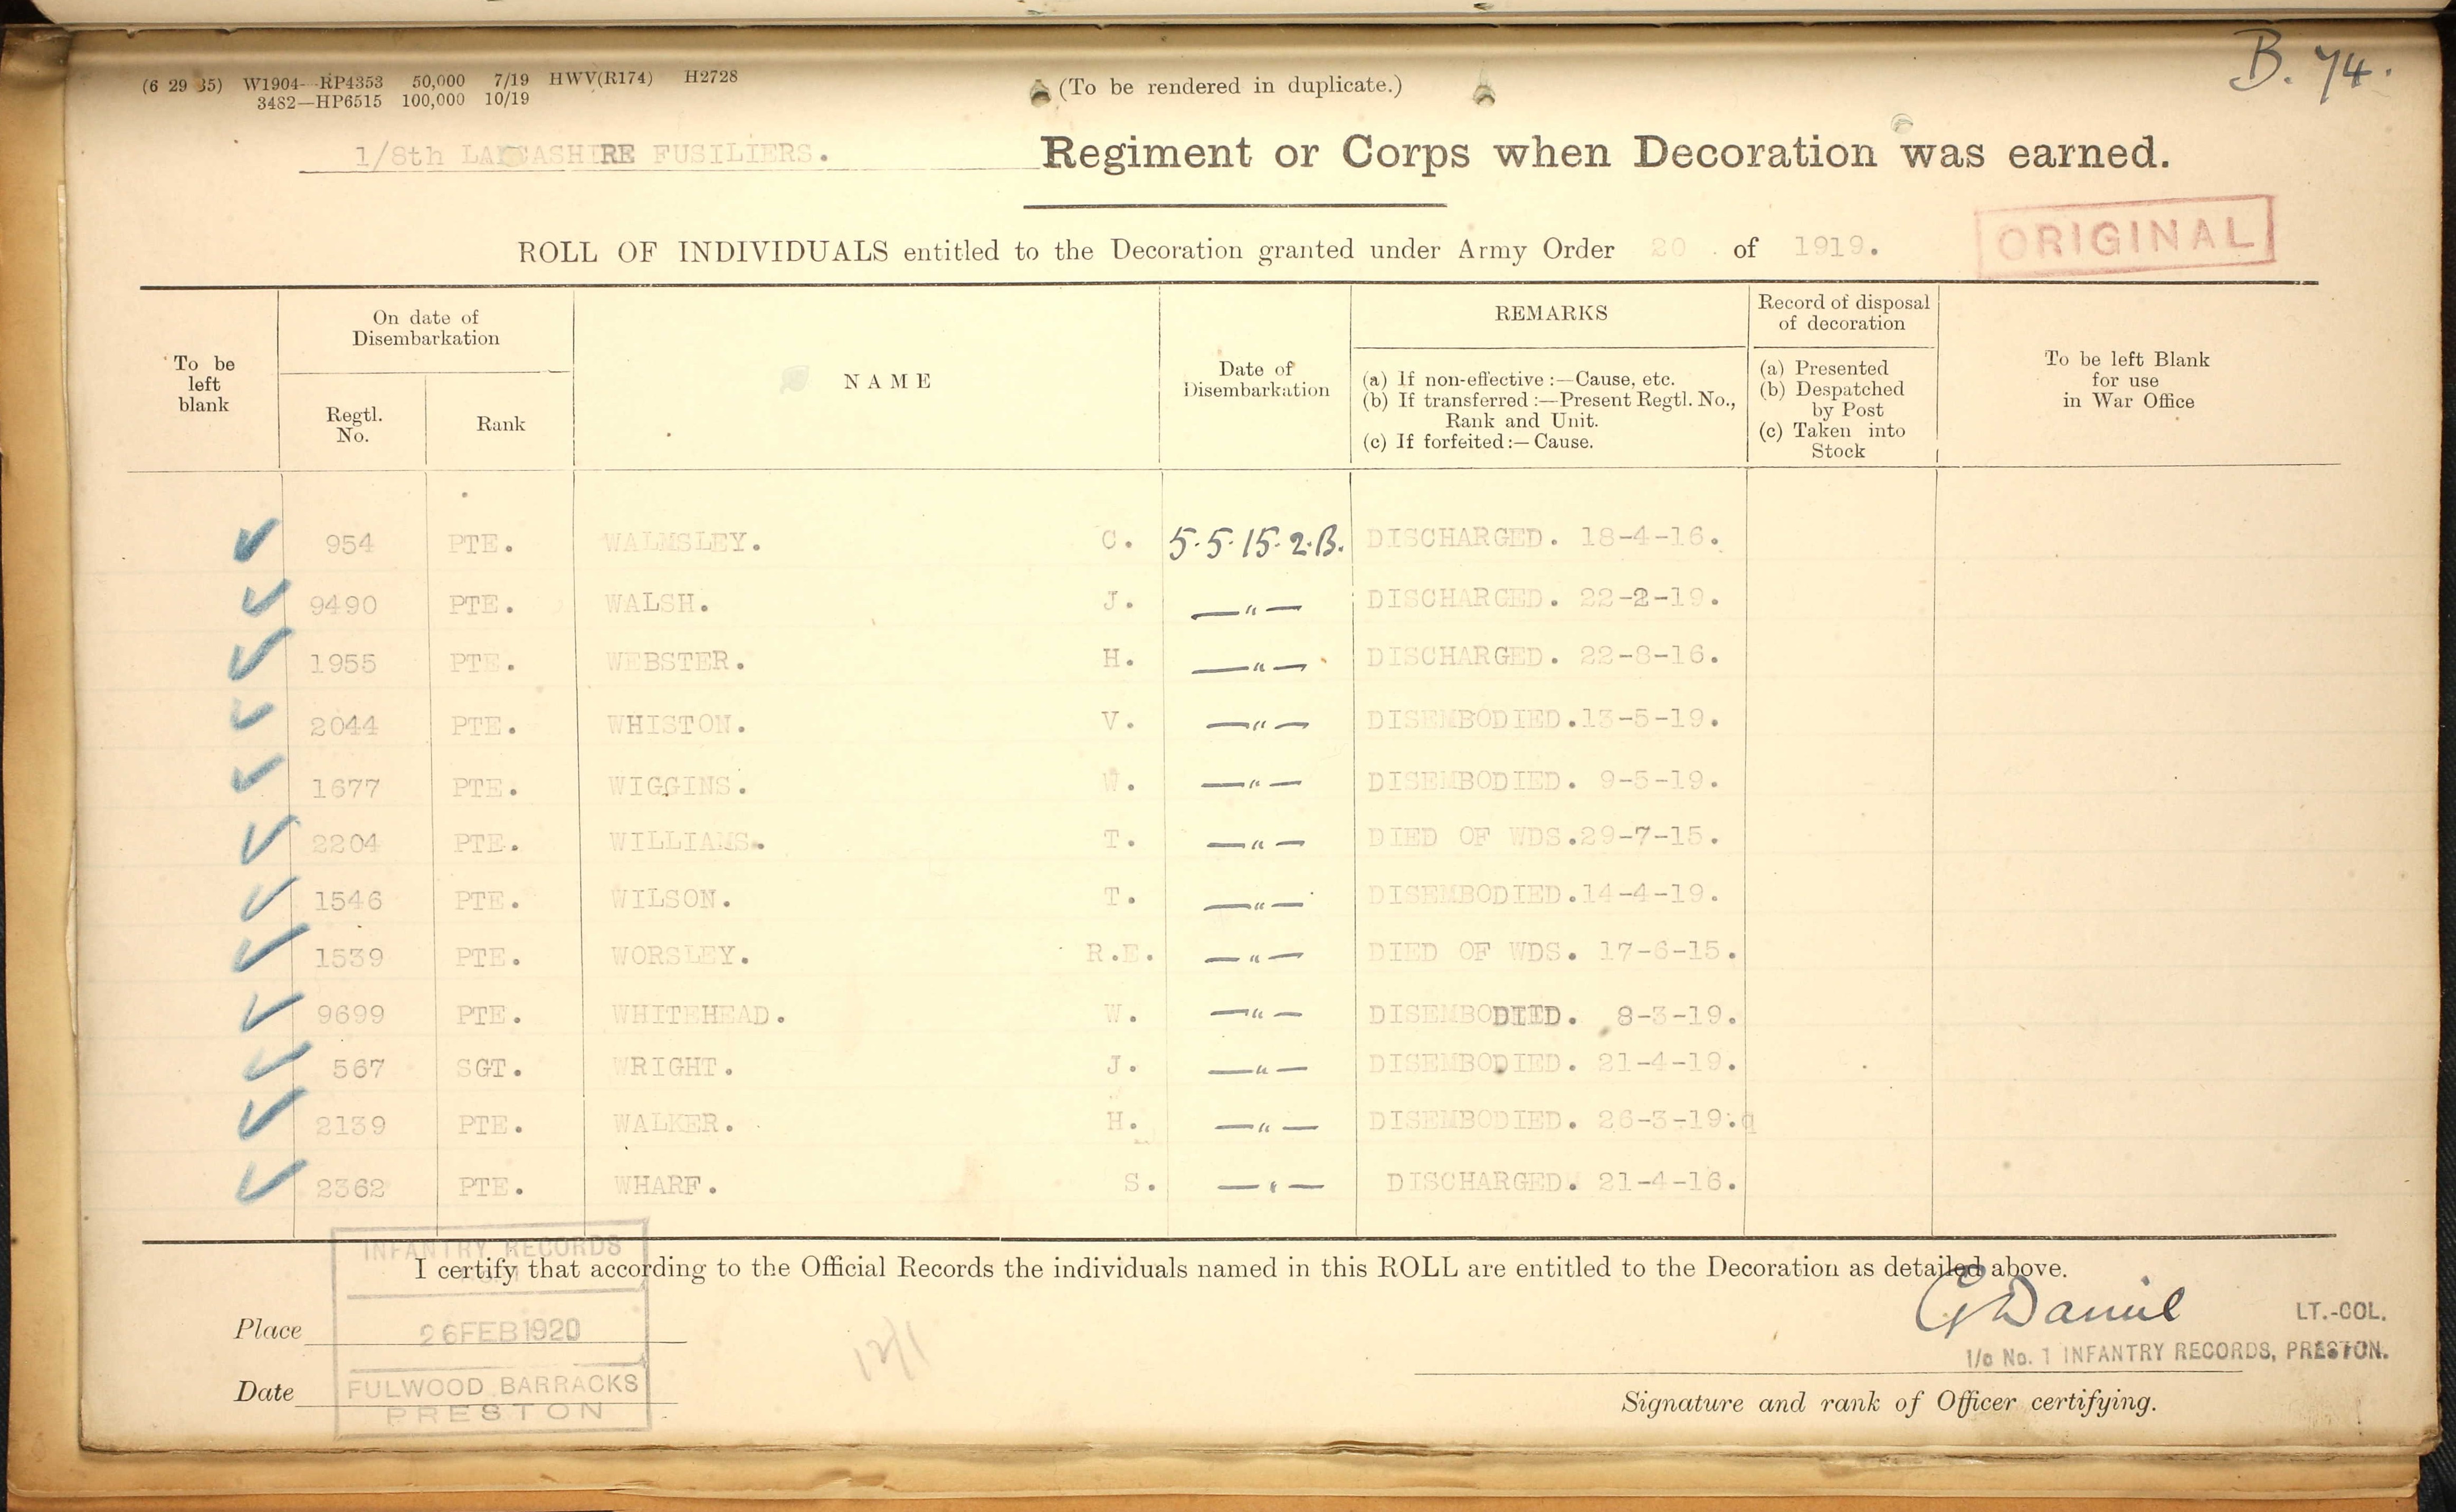 B. 74.
(6 29 35) W1904—RP4353 50,000 7/19 HWV(R174) H2728
3482—HP6515 100,000 10/19
(To be rendered in duplicate.)
1/8th LANCASHIRE FUSILIERS. Regiment or Corps when Decoration was earned.
ORIGINAL
ROLL OF INDIVIDUALS entitled to the Decoration granted under Army Order 20 of 1919.
To be left blank
On date of Disembarkation
Regtl. No.
Rank
NAME
Date of Disembarkation
REMARKS
(a) If non-effective :—Cause, etc.
(b) If transferred :—Present Regtl. No., Rank and Unit.
(c) If forfeited :—Cause.
Record of disposal of decoration
(a) Presented
(b) Despatched by Post
(c) Taken into Stock
To be left Blank for use in War Office
954 PTE. WALMSLEY. C. 5.5.15.2.B. DISCHARGED. 18-4-16.
9490 PTE. WALSH. J. —"— DISCHARGED. 22-2-19.
1955 PTE. WEBSTER. H. —"— DISCHARGED. 22-8-16.
2044 PTE. WHISTON. V. —"— DISEMBODIED.13-5-19.
1677 PTE. WIGGINS. W. —"— DISEMBODIED. 9-5-19.
2204 PTE. WILLIAMS. T. —"— DIED OF WDS.29-7-15.
1546 PTE. WILSON. T. —"— DISEMBODIED.14-4-19.
1539 PTE. WORSLEY. R.E. —"— DIED OF WDS. 17-6-15.
9699 PTE. WHITEHEAD. W. —"— DISEMBODIED. 8-3-19.
567 SGT. WRIGHT. J. —"— DISEMBODIED. 21-4-19.
2139 PTE. WALKER. H. —"— DISEMBODIED. 26-3-19.
2362 PTE. WHARF. S. —"— DISCHARGED. 21-4-16.
INFANTRY RECORDS
I certify that according to the Official Records the individuals named in this ROLL are entitled to the Decoration as detailed above.
G Daniel LT.-COL.
Place 26 FEB 1920
I/c No. 1 INFANTRY RECORDS, PRESTON.
Date FULWOOD BARRACKS
PRESTON
Signature and rank of Officer certifying.